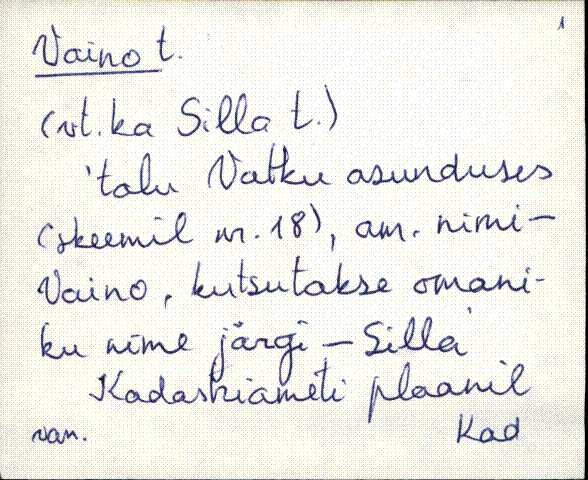 1
Vaino t.
(vt. ka Silla t.)
'talu Vatku asunduses
(skeemil nr. 18), am. nimi -
Vaino, kutsutakse omani-
ku nime järgi - Silla'
Kadastriameti plaanil
van. Kad